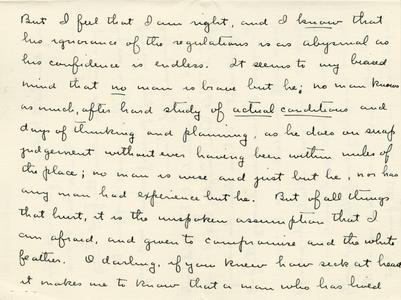 But I feel that I am right, and I know that
his ignorance of the regulations is as abysmal as
his confidence is endless. It seems to my biased
mind that no man is brave but he; no man knows
as much, after hard study of actual conditions and
days of thinking and planning, as he does on snap
judgement without ever having been within miles of
the place; no man is wise and just but he, nor has
any man had experience but he. But of all things
that hurt, it is the unspoken assumption that I
am afraid, and given to compromise and the white
feather. O darling, if you knew how sick at heart
it makes me to know that a man who has lived